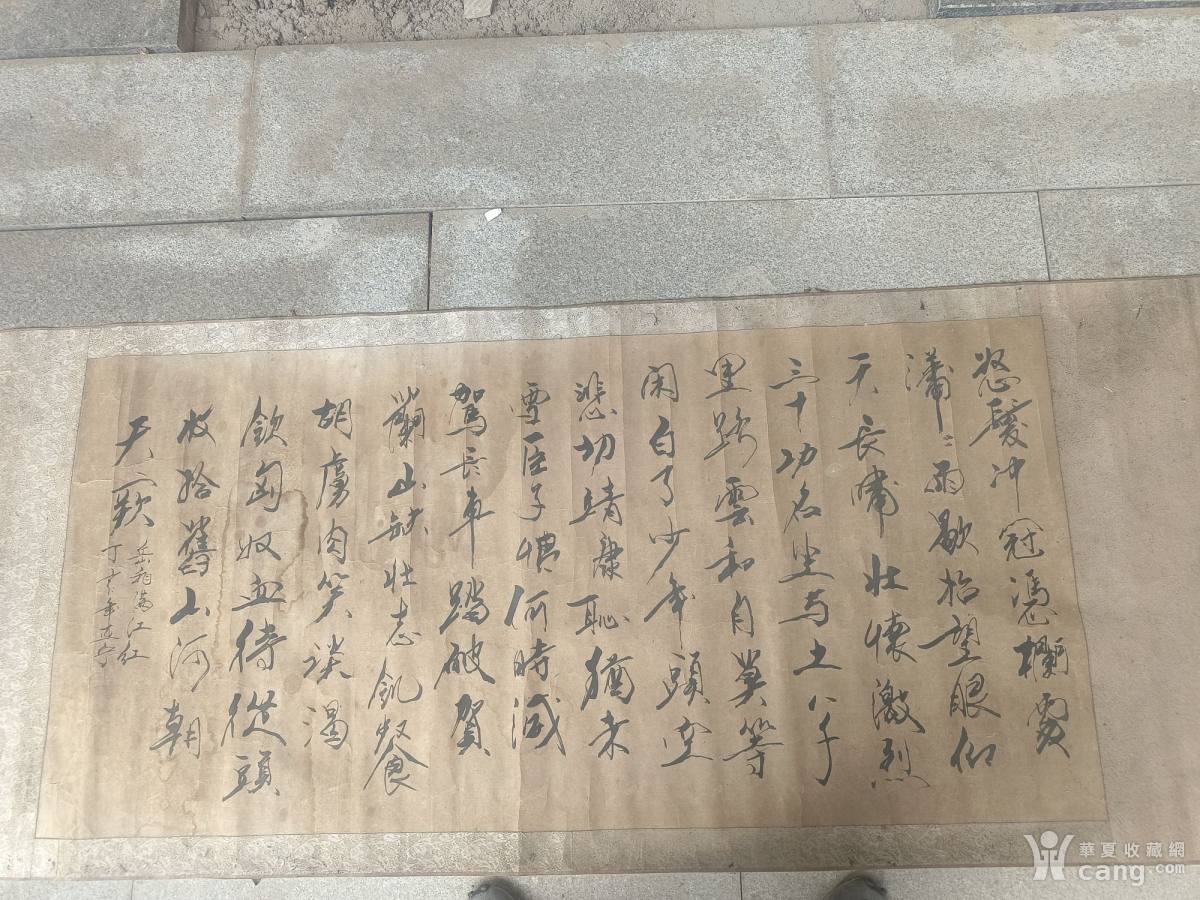 怒髮冲冠憑欄處
瀟〻雨歇抬望眼仰
天長嘯壯懷激烈
三十功名尘与土八千
里路雲和月莫等
闲白了少年頭空
悲切靖康恥猶未
雪臣子恨何時滅
駕長車踏破賀
蘭山缺壯志飢餐
胡虜肉笑談渴
飲匈奴血待從頭
收拾舊山河朝
天闕
岳飛滿江红
華夏收藏網
cang.com